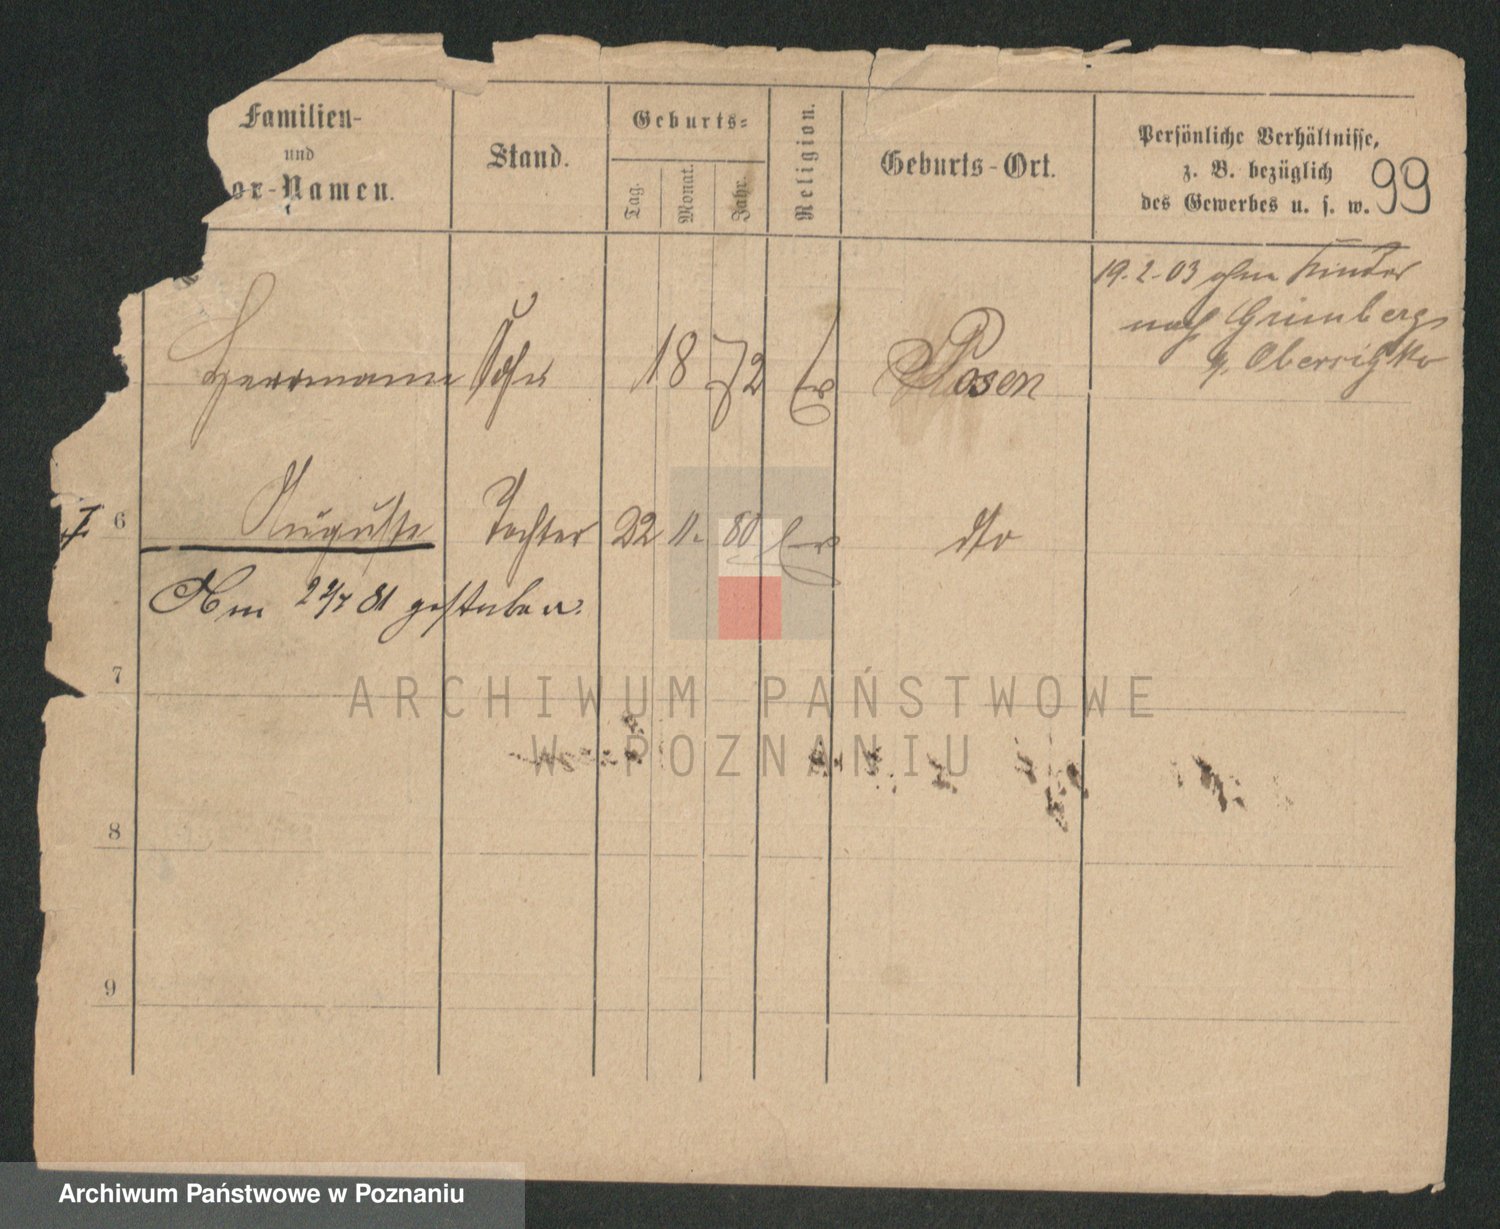 Familien-
und
or-Namen.
Stand.
Geburts-
Tag.
Monat.
Jahr.
Religion.
Geburts-Ort.
Persönliche Verhältnisse,
z. B. bezüglich
des Gewerbes u. s. w.
99
19.2.03 ohne Kinder
nach Grünberg
Herrmann Sohn 18 72 Ev Posen
6 Auguste Tochter 22 11. 80 Ev dto
Am 2 2/7 81 gestorben.
7
8
9
ARCHIWUM PAŃSTWOWE
W POZNANIU
Archiwum Państwowe w Poznaniu